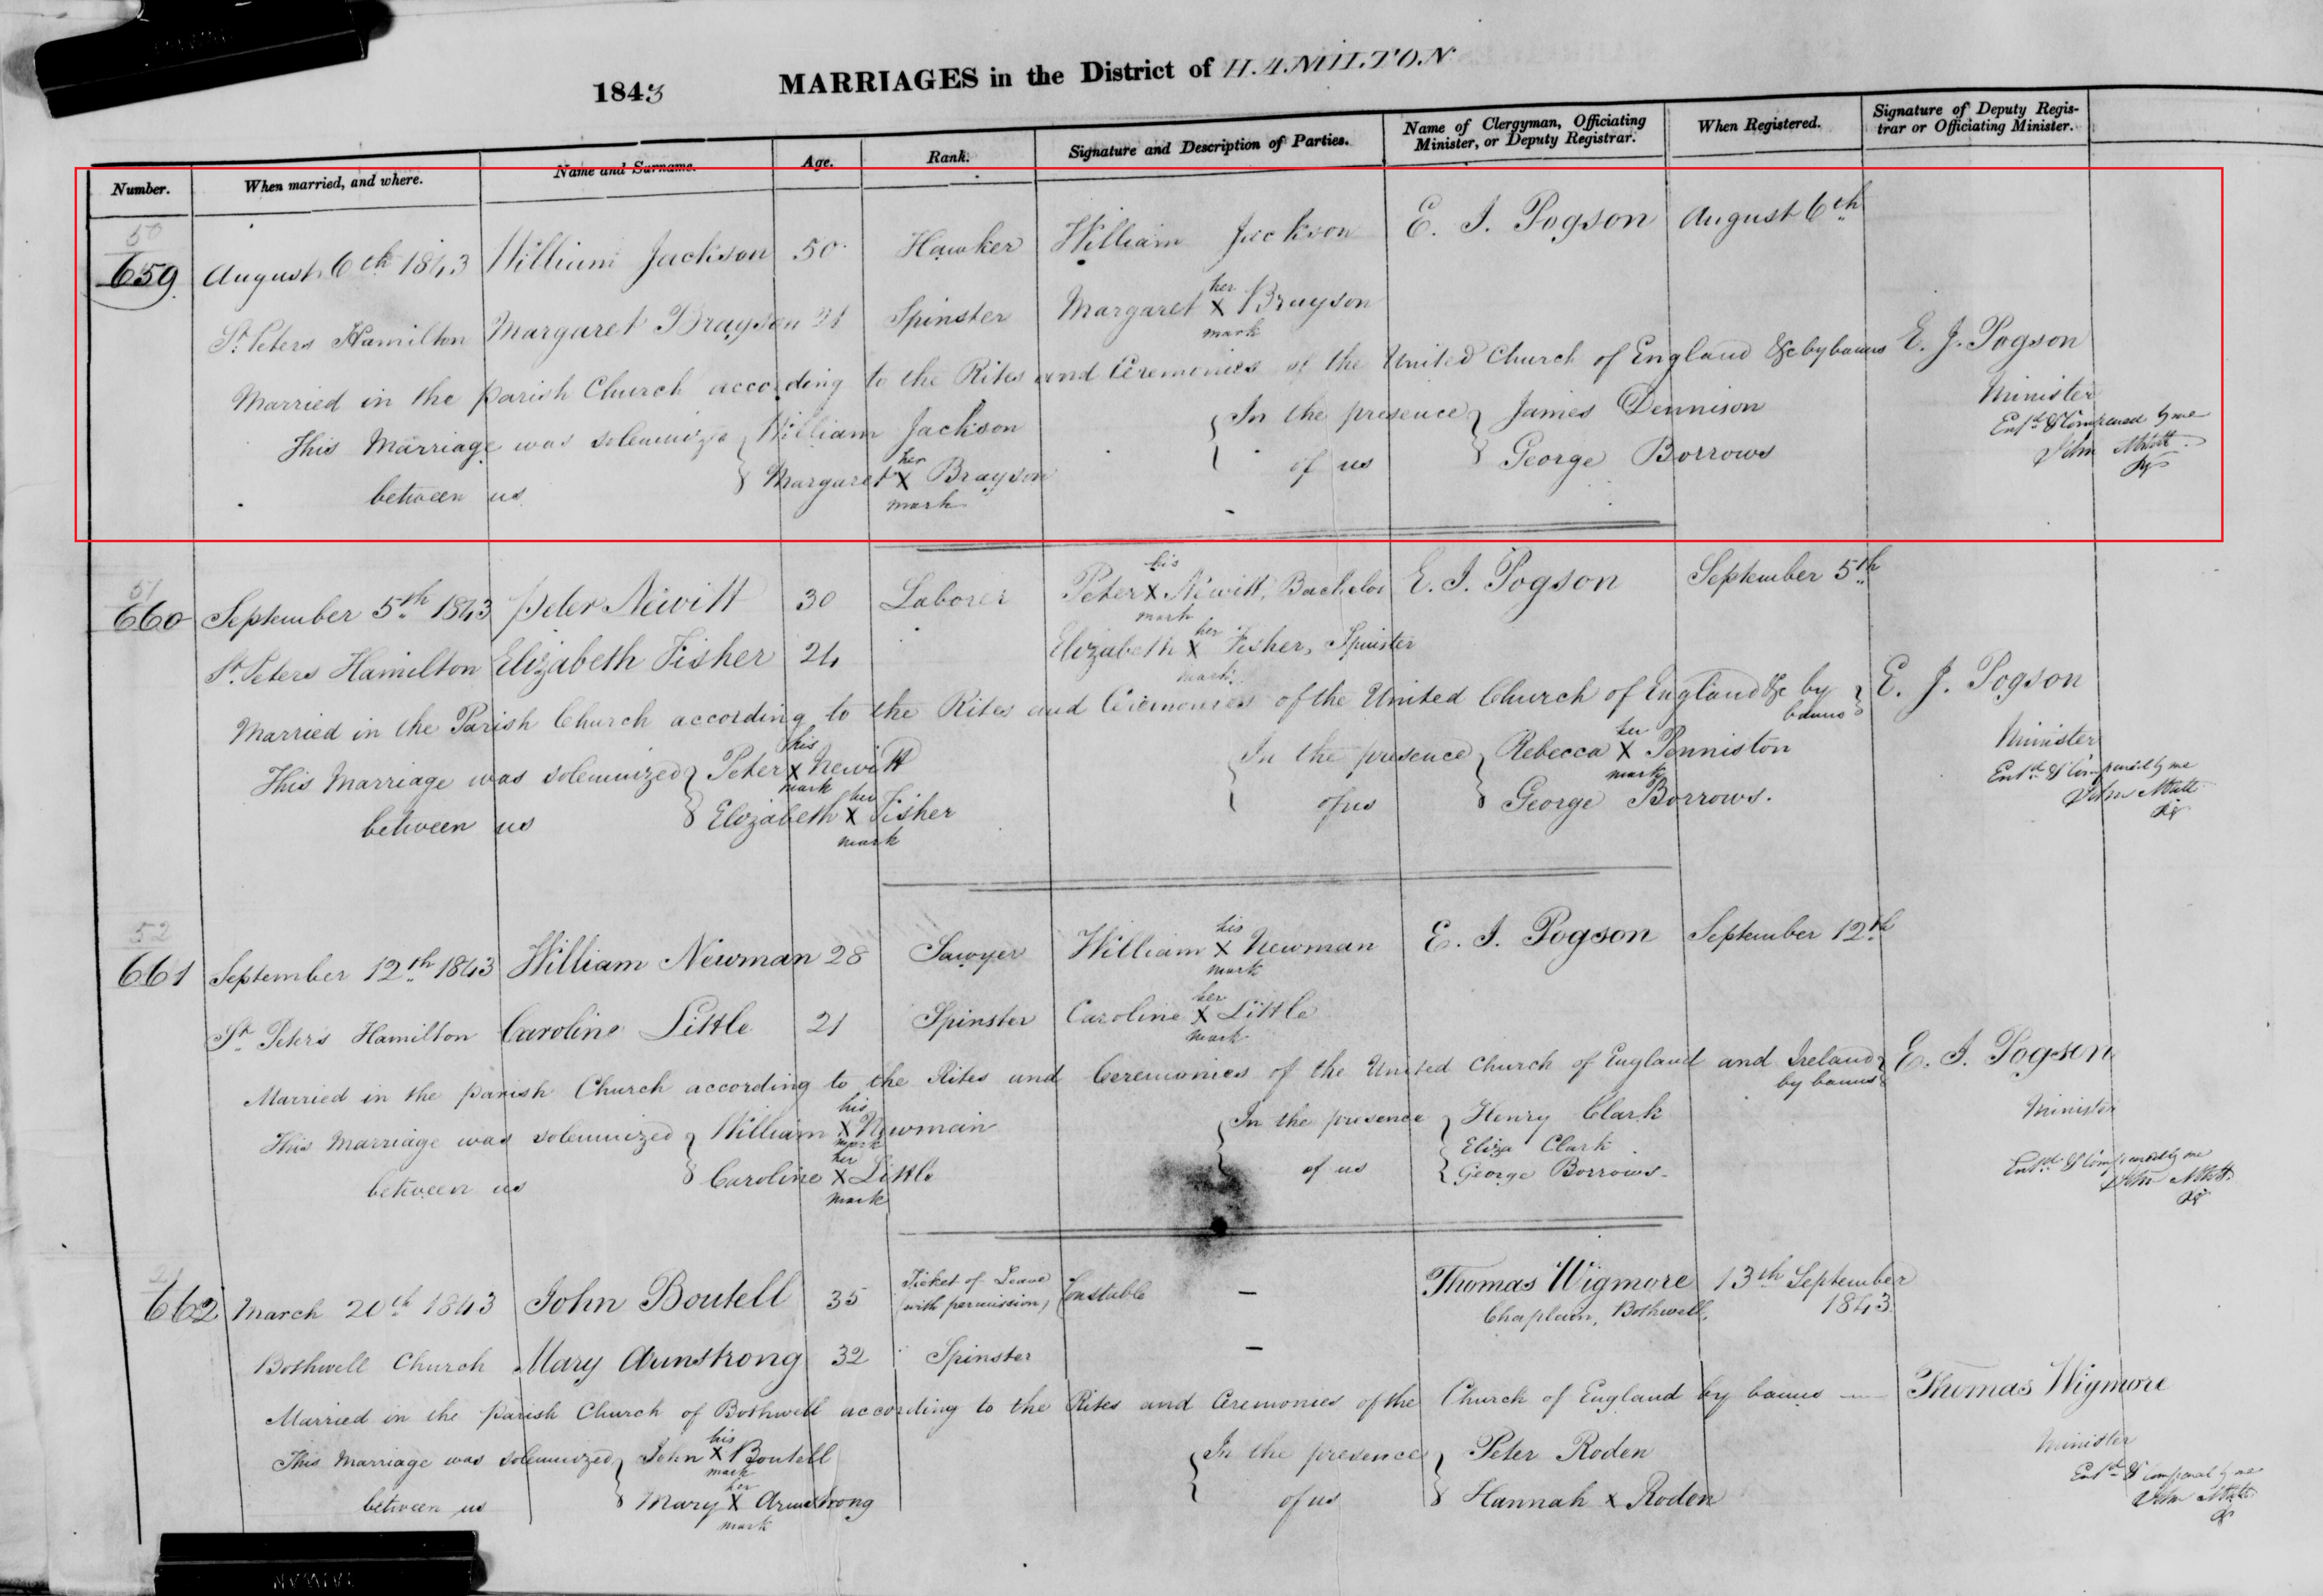 1843 MARRIAGES in the District of HAMILTON
Number. When married, and where. Name and Surname. Age. Rank. Signature and Description of Parties. Name of Clergyman, Officiating Minister, or Deputy Registrar. When Registered. Signature of Deputy Registrar or Officiating Minister.
50
659 August 6th 1843 William Jackson 50 Hawker William Jackson E. I. Pogson August 6th
St. Peters Hamilton Margaret Brayson 21 Spinster Margaret her X mark Brayson
Married in the parish Church according to the Rites and Ceremonies of the United Church of England &c by banns E. J. Pogson
Minister
This Marriage was solemnized William Jackson In the presence James Dennison
between us Margaret her X mark Brayson of us George Borrows
Entd. & Compared by me
John
51
660 September 5th 1843 Peter Newitt 30 Laborer Peter his X mark Newitt, Bachelor E. I. Pogson September 5th
St. Peters Hamilton Elizabeth Fisher 24 Elizabeth her X mark Fisher, Spinster
Married in the Parish Church according to the Rites and Ceremonies of the United Church of England &c by banns E. J. Pogson
Minister
This Marriage was solemnized Peter his X mark Newitt In the presence Rebecca her X mark Penniston
between us Elizabeth her X mark Fisher of us George Borrows.
Entd. & Compared by me
John
52
661 September 12th 1843 William Newman 28 Sawyer William his X mark Newman E. I. Pogson September 12th
St. Peters Hamilton Caroline Little 21 Spinster Caroline her X mark Little
Married in the parish Church according to the Rites and Ceremonies of the United Church of England and Ireland by banns E. I. Pogson
Minister
This Marriage was solemnized William his X mark Newman In the presence Henry Clark
Eliza Clark
between us Caroline her X mark Little of us George Borrows
Entd. & Compared by me
John
662 March 20th 1843 John Boutell 35 Ticket of Leave (with permission) Constable — Thomas Wigmore Chaplain, Bothwell, 13th September 1843
Bothwell Church Mary Armstrong 32 Spinster —
Married in the parish Church of Bothwell according to the Rites and Ceremonies of the Church of England by banns — Thomas Wigmore
Minister
This Marriage was solemnized John his X mark Boutell In the presence Peter Roden
between us Mary her X mark Armstrong of us Hannah x Roden
Entd. & Compared by me
John